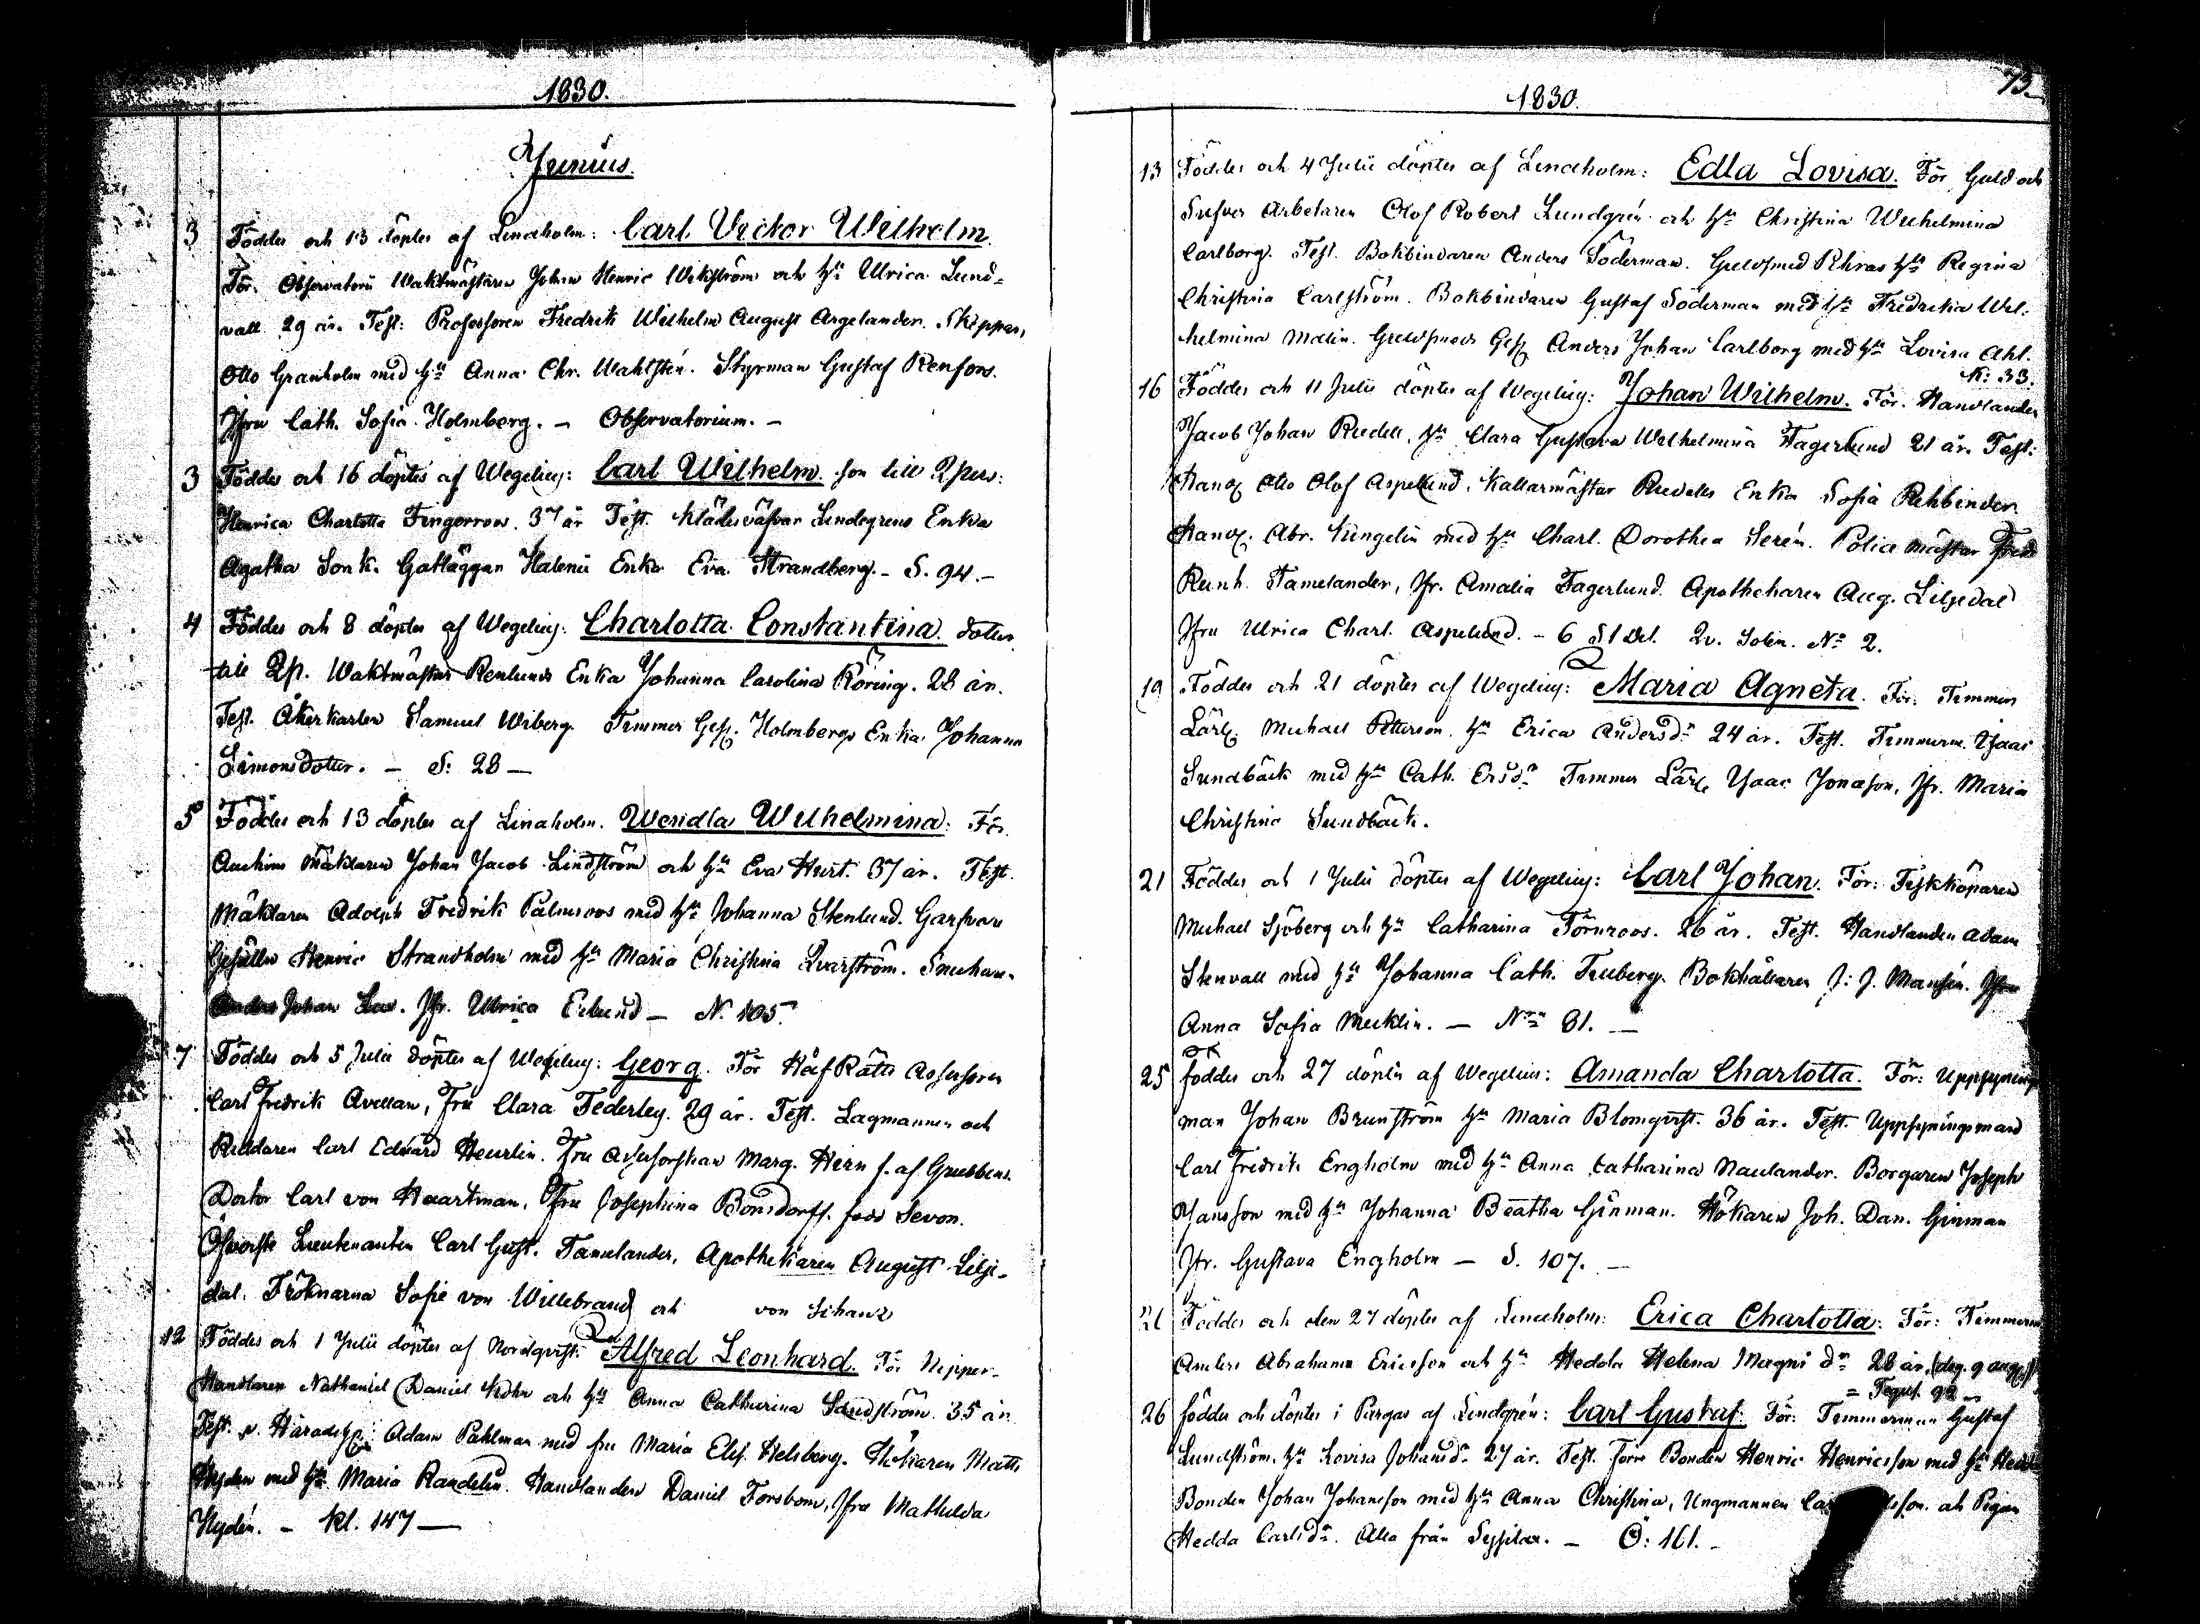 1830.
Junius.
3 Föddes och 13 döptes af Lindholm: Carl Victor Wilhelm.
För. Observatorii Waktmästaren Johan Henric Wikström och hu Ulrica Lund=
vall 29 år. Test: Professoren Fredrik Wilhelm August Argelander. Skepparn,
Otto Granholm med hu Anna Chr. Wahlstén. Styrman Gustaf Renfors.
Jfru Cath. Sofia Holmberg. — Observatorium. —
3 Föddes och 16 döptes af Wegelius: Carl Wilhelm. son till Qpers:
Henrica Charlotta Fingerroos. 37 år Test. Klädesväfvar Lindegrens Enka
Agatha Sonk. Gatläggar Halenii Enka Eva Strandberg. — S. 94. —
4 Föddes och 8 döptes af Wegelius: Charlotta Constantina. dotter
till Qp. Waktmästar Renlunds Enka Johanna Carolina Röring. 28 år.
Test. Åkerkarlen Samuel Wiberg. Timmer Ges. Holmbergs Enka Johanna
Simonsdotter. — S: 28 —
5 Föddes och 13 döptes af Lindholm. Wendla Wilhelmina: För.
Auctions Mäklaren Johan Jacob Lindström och hu Eva Hurt. 37 år. Test.
Mäklaren Adolph Fredrik Palmroos med hu Johanna Stenlund. Garfvare
Gesällen Henric Strandholm med hu Maria Christina Qvarström. Snickare.
Johan Jfr. Ulrica Eklund — N. 105.
7 Föddes och 5 Julii döptes af Wegelius: Georg. För Håf Rätts Assessoren
Carl Fredrik Avellan, Fru Clara Federley. 29 år. Test. Lagmannen och
Riddaren Carl Edvard Heurlin. Fru Assessorskan Marg. Hern f. af Grubbens.
Doctor Carl von Haartman, Fru Josephina Bonsdorff. född Sevon.
Öfverste Lieutenanten Carl Gust. Tamelander, Apothekaren August Lilje-
dal. Fröknarna Sofie von Willebrand och von Schantz
12 Föddes och 1 Julii döptes af Nordqvist: Alfred Leonhard. För Nipper-
Handlaren Nathanael Daniel Krohn och hu Anna Catharina Sandström 35 år
Test. v. Häradshöf: Adam Pahlman med fru Maria Elis. Helsberg. Hökaren Matts
Nyden med hu Maria Randelin. Handlanden Daniel Forsbom, Jfru Mathilda
Nydén. — Kl. 147 —
73.
1830.
13 Föddes och 4 Julii döptes af Lindholm: Edla Lovisa. För Guld och
Silfver Arbetaren Olof Robert Lundgrén och hu Christina Wilhelmina
Carlborg. Test. Bokbindaren Anders Söderman. Guldsmed Rehras hu Regina
Christina Carlström. Bokbindaren Gustaf Söderman med hu Fredrika Wil-
helmina Malin. Guldsmeds Ges. Anders Johan Carlborg med hu Lovisa Ahl.
K: 33.
16 Föddes och 11 Julii döptes af Wegelius: Johan Wilhelm. För. Handlanden
Jacob Johan Ruedell, hu Clara Gustava Wilhelmina Fagerlund 21 år. Test:
Hand. Otto Olof Aspelund, Källarmästar Ruedells Enka Sofia Rehbinder.
Hand. Abr. Kingelin med hu Charl. Dorothea Serén. Police mästar Fred.
Reinh. Tamelander, Jfr. Amalia Fagerlund. Apothekaren Aug. Liljedal
Jfru Ulrica Charl. Aspelund. — 6 St Del. Qv. Tolen. No 2.
19 Föddes och 21 döptes af Wegelius: Maria Agneta. För: Timmer
Lärl. Michael Petterson. hu Erica Andersdr 24 år. Test. Timmerm. Isaac
Sundbäck med hu Cath. Ersdr Timmer Lärl. Isaac Jonæson, Jfr. Maria
Christina Sundbäck.
21 Föddes och 1 Julii döptes af Wegelius: Carl Johan. För: Fiskköparen
Michael Sjöberg och hu Catharina Törnroos. 26 år. Test. Handlanden Adam
Stenvall med hu Johanna Cath. Truberg. Bokhållaren J. J. Mansén. Jfru
Anna Sofia Mecklin. — No 81. —
25 föddes och 27 döptes af Wegelius: Amanda Charlotta. För: Uppsynings
man Johan Brunström hu Maria Blomqvist. 36 år. Test. Uppsyningsman
Carl Fredrik Engholm med hu Anna Catharina Naulander. Borgaren Joseph
Jansson med hu Johanna Beatha Ginman. Hökaren Joh. Dan. Ginman
Jfr. Gustava Engholm — S. 107. —
21 Föddes och den 27 döptes af Lindholm: Erica Charlotta: För: Timmerm.
Anders Abraham Ericsson och hu Hedda Helena Magni dr 28 år,
26 födder och döptes i Pargas af Lindgrén: Carl Gustaf. För: Timmerman Gustaf
Lundström. hu Lovisa Johansdr 27 år. Test. Torp Bonden Henric Henricsson med hu Hedda
Bonden Johan Johansson med hu Anna Christina, Ungmannen och Pigan
Hedda Carlsdr. Alla från Sysilax. — Ö: 161. —